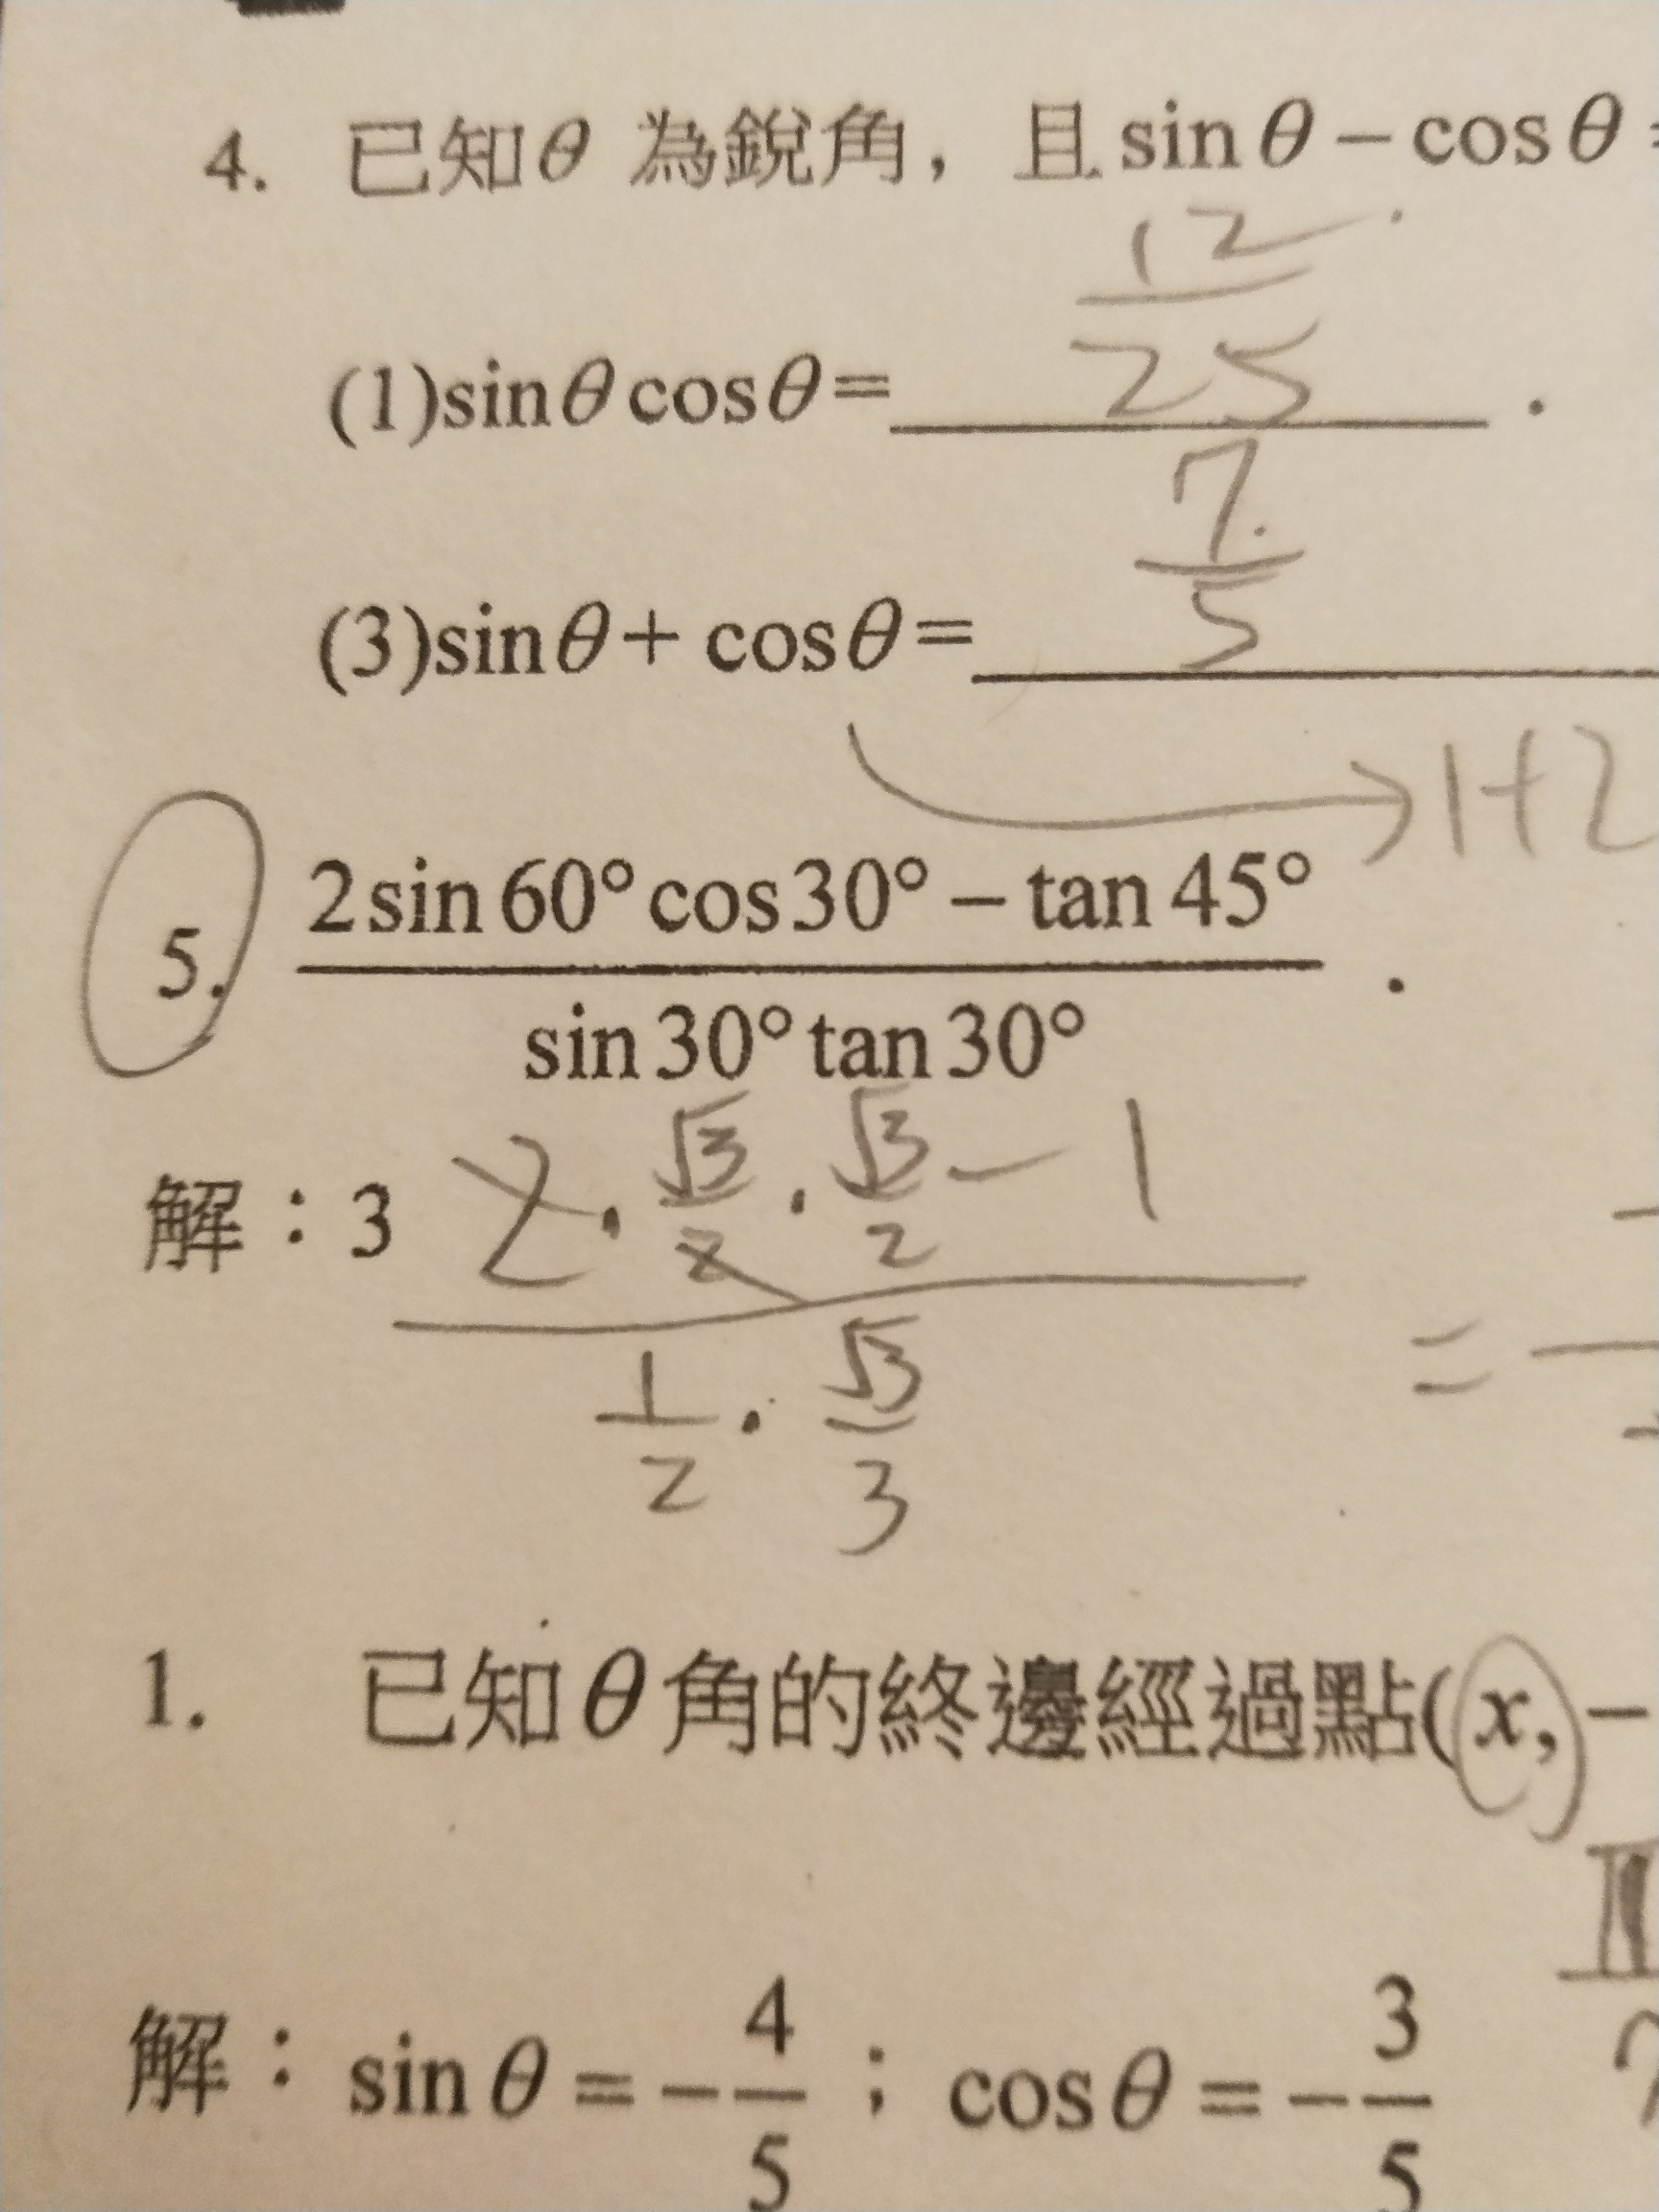 4. 已知θ 為銳角，且sinθ−cosθ=
12
25
(1)sinθcosθ=______.
7
5
(3)sinθ+cosθ=______
→1+2
2sin60°cos30°−tan45°
5. .
sin30°tan30°
解：3 2·√3/2·√3/2−1
1/2·√3/3 =
1. 已知θ角的終邊經過點(x,−
解：sinθ=−4/5；cosθ=−3/5